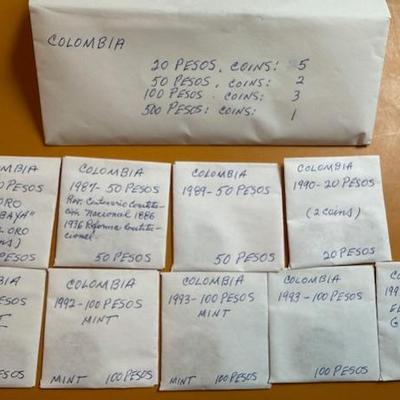 COLOMBIA
20 PESOS, COINS: 5
50 PESOS, COINS: 2
100 PESOS COINS: 3
500 PESOS: COINS: 1
COLOMBIA
PESOS
ORO
BAYA"
L ORO
PESOS
COLOMBIA
1987-50 PESOS
Centenario Constitu-
ción "Nacional 1886
1936 Reforma Constitu-
cional
50 PESOS
COLOMBIA
1989-50 PESOS
50 PESOS
COLOMBIA
1990-20 PESOS
(2 COINS)
20 PESOS
COLOMBIA
1992-100 PESOS
MINT
MINT 100 PESOS
COLOMBIA
1993-100 PESOS
MINT
MINT 100 PESOS
COLOMBIA
1993-100 PESOS
100 PESOS